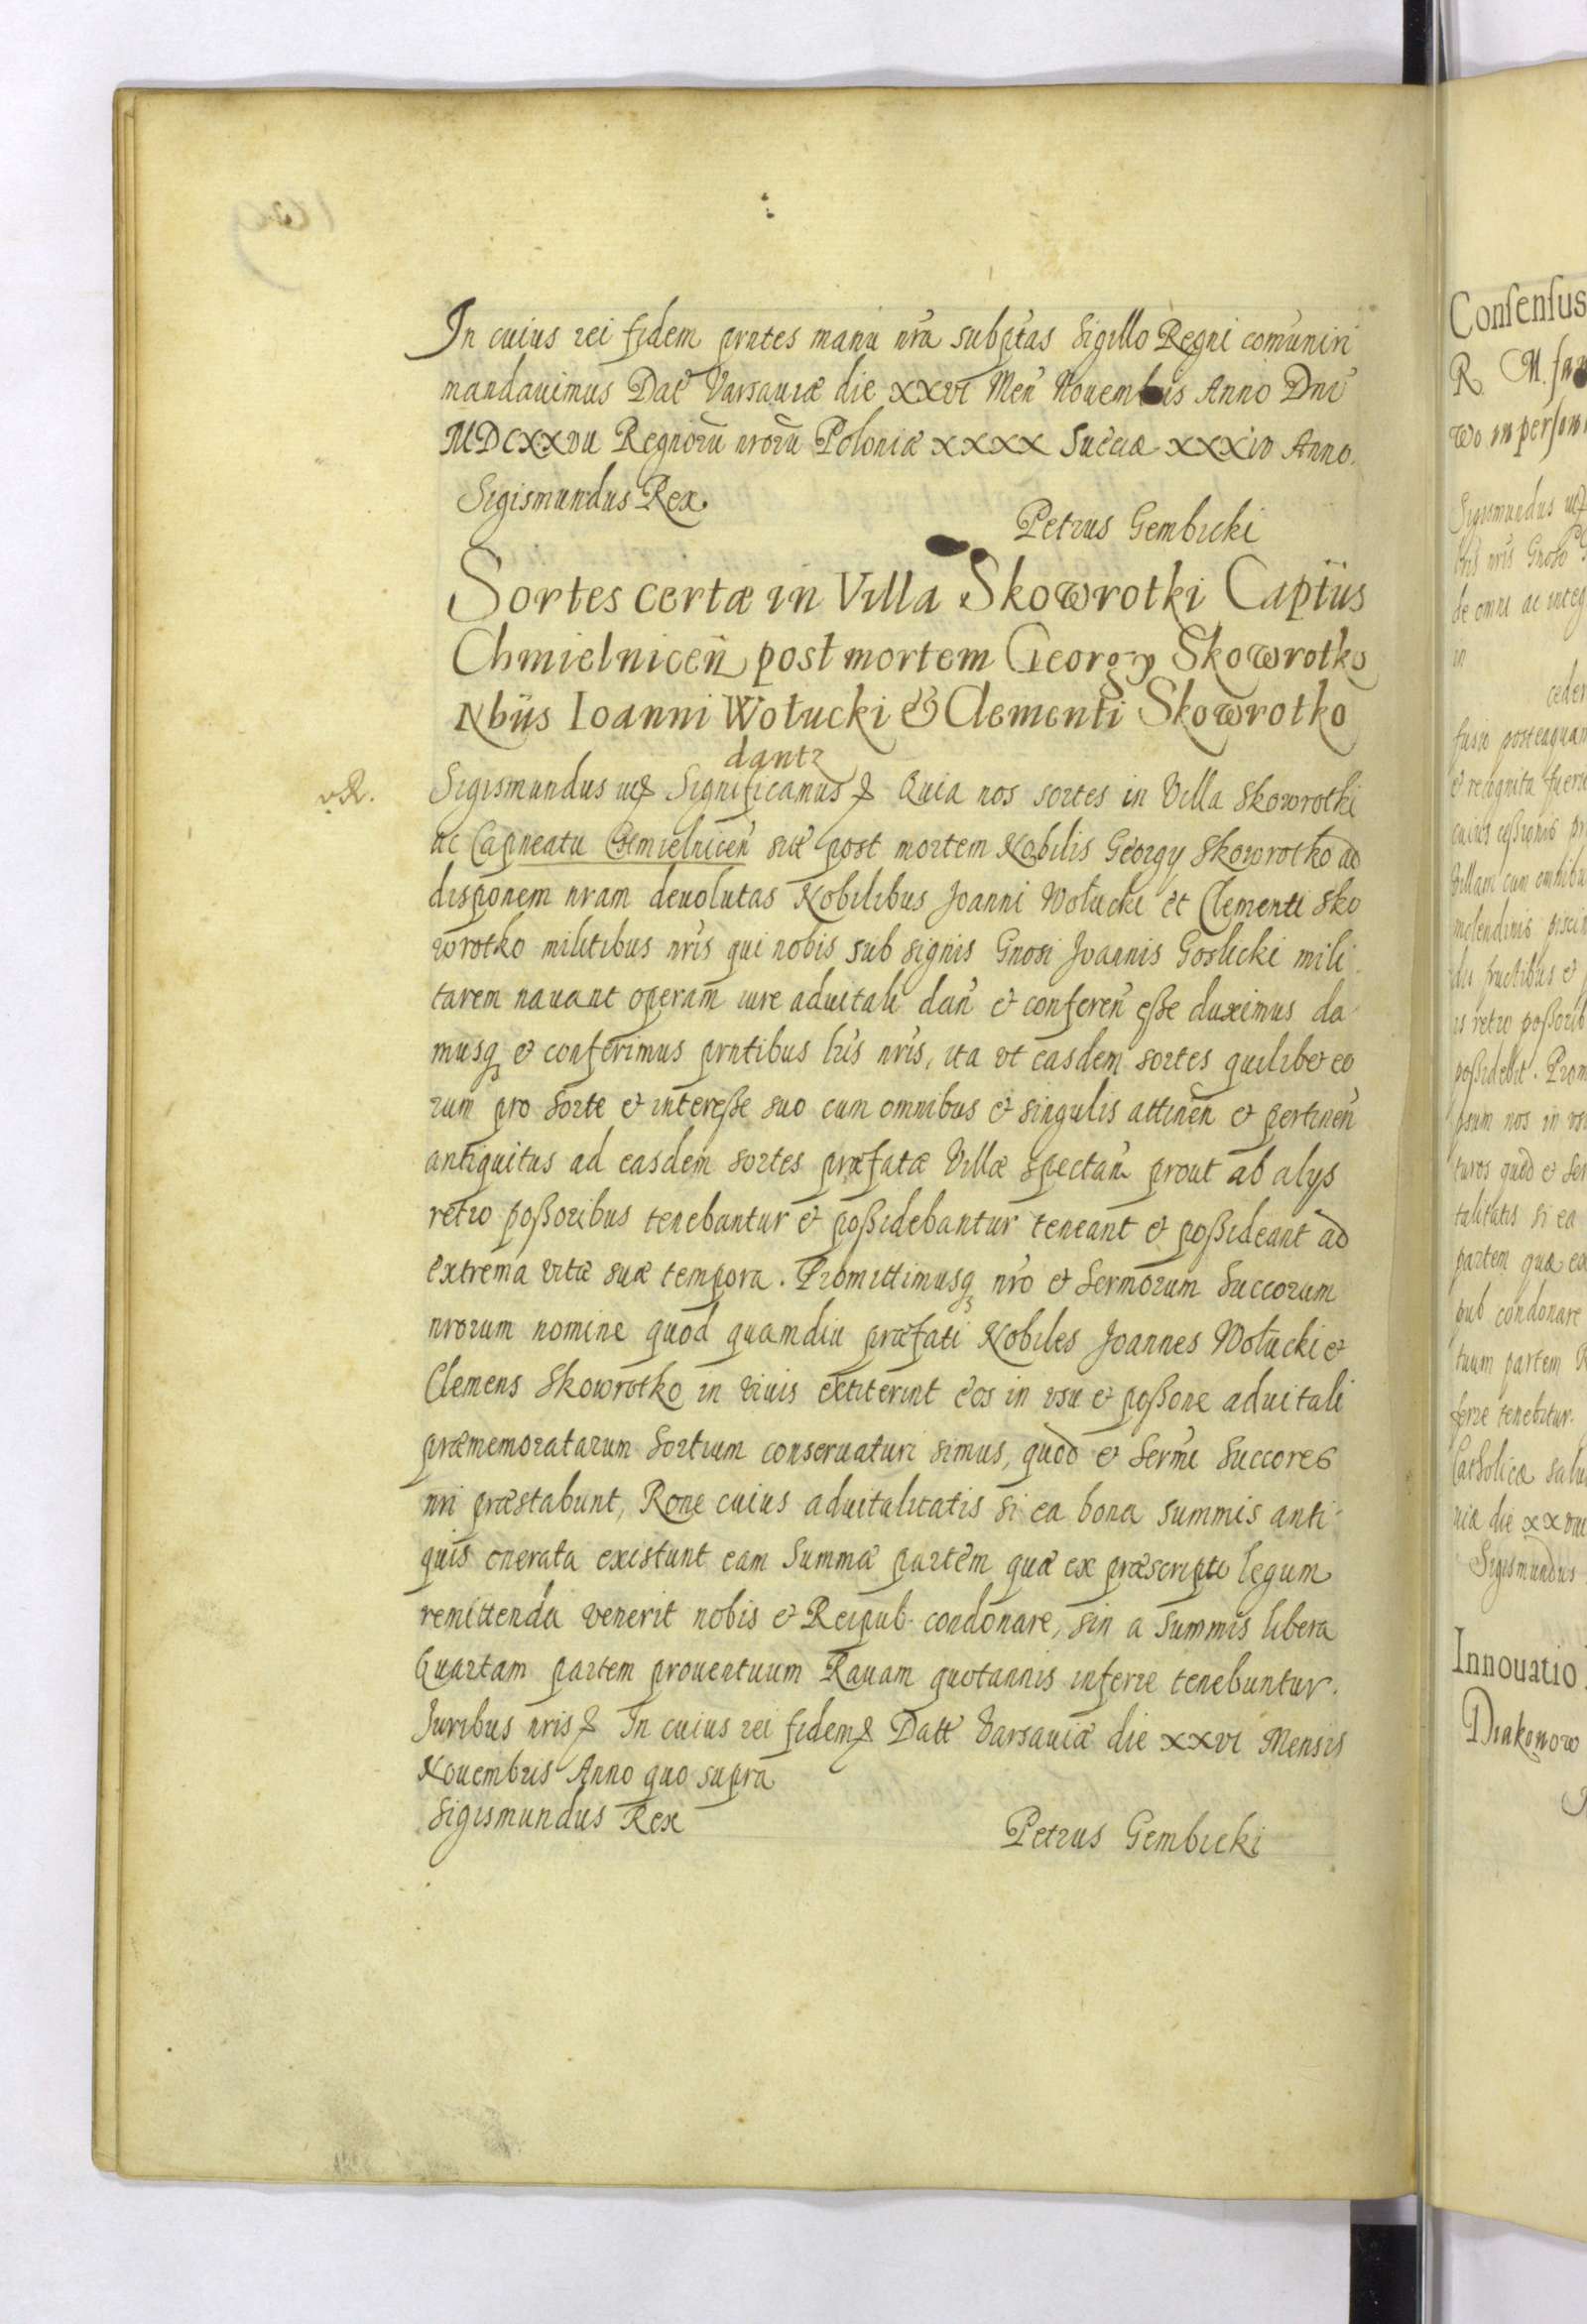 In cuius rei fidem prntes manu nra subptas Sigillo Regni comuniri
mandauimus Dat Varsauiæ die XXVI Men Nouembris Anno Dni
MDCXXVII Regnorũ nrorũ Poloniæ XXXX Sueciæ XXXIV Anno.
Sigismundus Rex.
Petrus Gembicki
Sortes certæ in Villa Skowrotki Captûs
Chmielniceñ post mortem Georgy Skowrotko
Nbûs Ioanni Wołucki & Clementi Skowrotko
dantr
Sigismundus Significamus Quia nos sortes in Villa Skowrotki
Capneatu Chmielniceñ post mortem Nobilis Georgy Skowrotko ad
disponem nram deuolutas Nobilibus Joanni Wołucki et Clementi Sko
wrotko militibus nris qui nobis sub signis Gnosi Joannis Goslicki mili
tarem nauant operam iure aduitali dan & conferen esse duximus da
musq & conferimus prntibus lris nris, ita vt easdem sortes quilibet eo
rum pro sorte & interesse suo cum omnibus & singulis attinen & pertinen
antiquitus ad easdem sortes præfatæ Villæ spectan prout ab alys
retro possoribus tenebantur & possidebantur teneant & possideant ad
extrema vitæ suæ tempora. Promittimusq nro & Sermorum Succorum
nrorum nomine quod quamdiu præfati Nobiles Joannes Wołucki &
Clemens Skowrotko in viuis extiterint eos in vsu & possone aduitali
præmemoratarum Sortium conseruaturi simus, quod & Sermi Succores
nri præstabunt, Rone cuius aduitalitatis si ea bona summis anti
quis onerata existunt eam Summæ partem quæ ex præscripto legum
remittenda venerit nobis & Reipub. condonare, sin a Summis libera
Quartam partem prouentuum Rauam quotannis inferre tenebuntur.
Juribus nris In cuius rei fidem Datt Varsauiæ die XXVI Mensis
Nouembris Anno quo supra
Sigismundus Rex
Petrus Gembicki
Consensus
R. M.
wo in person
Sigismundus
de omni ac integ
in
ceder
& recognita
cum omnibus
molendinis
fructibus &
is retro
possidebit. Prom
psum nos in vsu
turos quod & Ser
talitatis si ea
partem quæ ex
pub condonare
tuum partem
ferre tenebitur.
Catholicæ
niæ die
Sigismundus
Innouatio
Diakonow